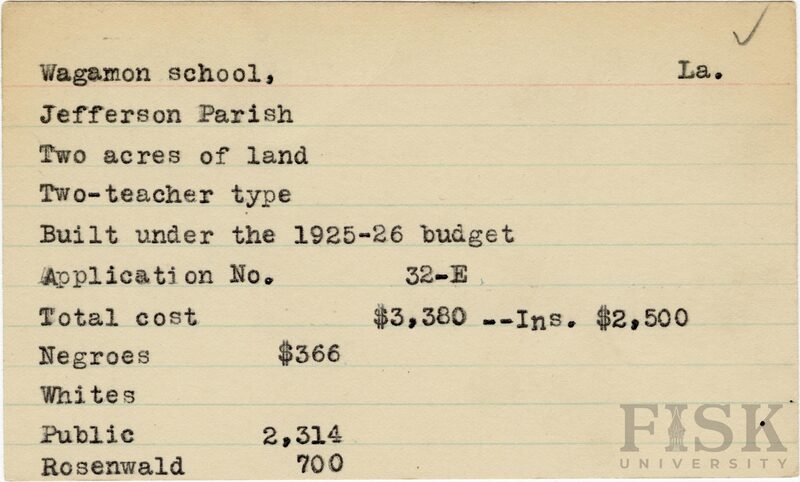 Wagamon school, La.
Jefferson Parish
Two acres of land
Two-teacher type
Built under the 1925-26 budget
Application No. 32-E
Total cost $3,380 --Ins. $2,500
Negroes $366
Whites
Public 2,314
Rosenwald 700
FISK
UNIVERSITY